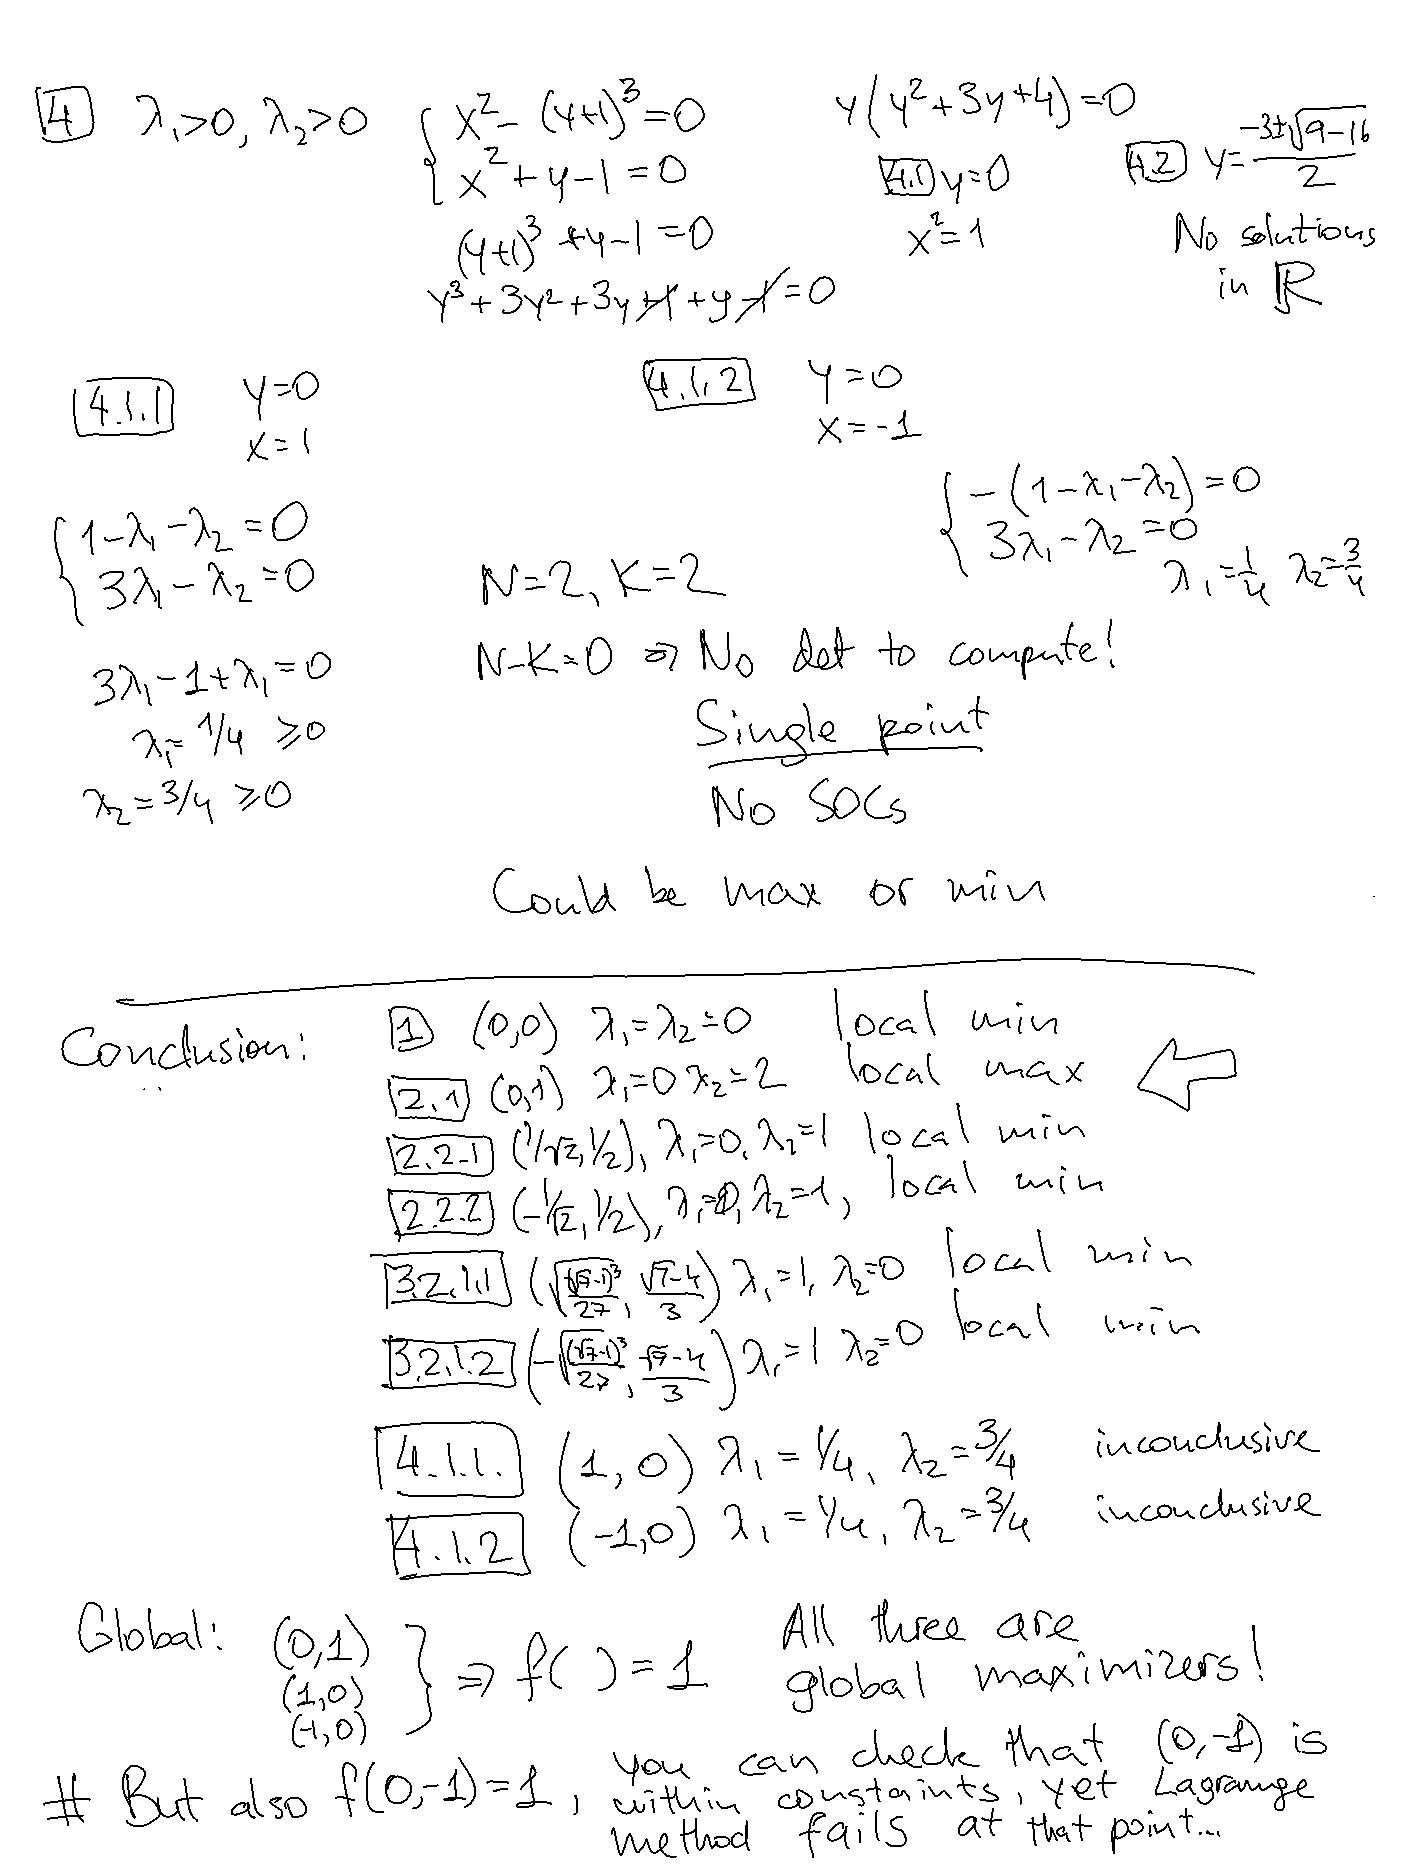 4 λ₁>0, λ₂>0 { x² - (y+1)³ = 0
x² + y - 1 = 0
(y+1)³ + y - 1 = 0
y³ + 3y² + 3y + 1 + y - 1 = 0
y(y² + 3y + 4) = 0
4.1 y = 0
x² = 1
4.2 y = (-3±√(9-16))/2
No solutions
in ℝ
4.1.1 y=0
x=1
{ 1-λ₁-λ₂ = 0
3λ₁-λ₂ = 0
3λ₁-1+λ₁ = 0
λ₁ = 1/4 ⩾ 0
λ₂ = 3/4 ⩾ 0
4.1.2 y=0
x=-1
{ -(1-λ₁-λ₂) = 0
3λ₁-λ₂ = 0
λ₁ = 1/4 λ₂ = 3/4
N=2, K=2
N-K=0 ⇒ No det to compute!
Single point
No SOCs
Could be max or min
Conclusion:
1 (0,0) λ₁=λ₂=0 local min
2.1 (0,1) λ₁=0 λ₂=2 local max ⇐
2.2.1 (1/√2, 1/2), λ₁=0, λ₂=1 local min
2.2.2 (-1/√2, 1/2), λ₁=0, λ₂=1, local min
3.2.1.1 (√((√7-1)³/27), (√7-4)/3) λ₁=1, λ₂=0 local min
3.2.1.2 (-√((√7-1)³/27), (√7-4)/3) λ₁=1 λ₂=0 local min
4.1.1. (1,0) λ₁=1/4, λ₂=3/4 inconclusive
4.1.2 (-1,0) λ₁=1/4, λ₂=3/4 inconclusive
Global: (0,1)
(1,0)
(-1,0)
} ⇒ f( ) = 1
All three are
global maximizers!
# But also f(0,-1)=1, you can check that (0,-1) is
within constaints, yet Lagrange
method fails at that point...